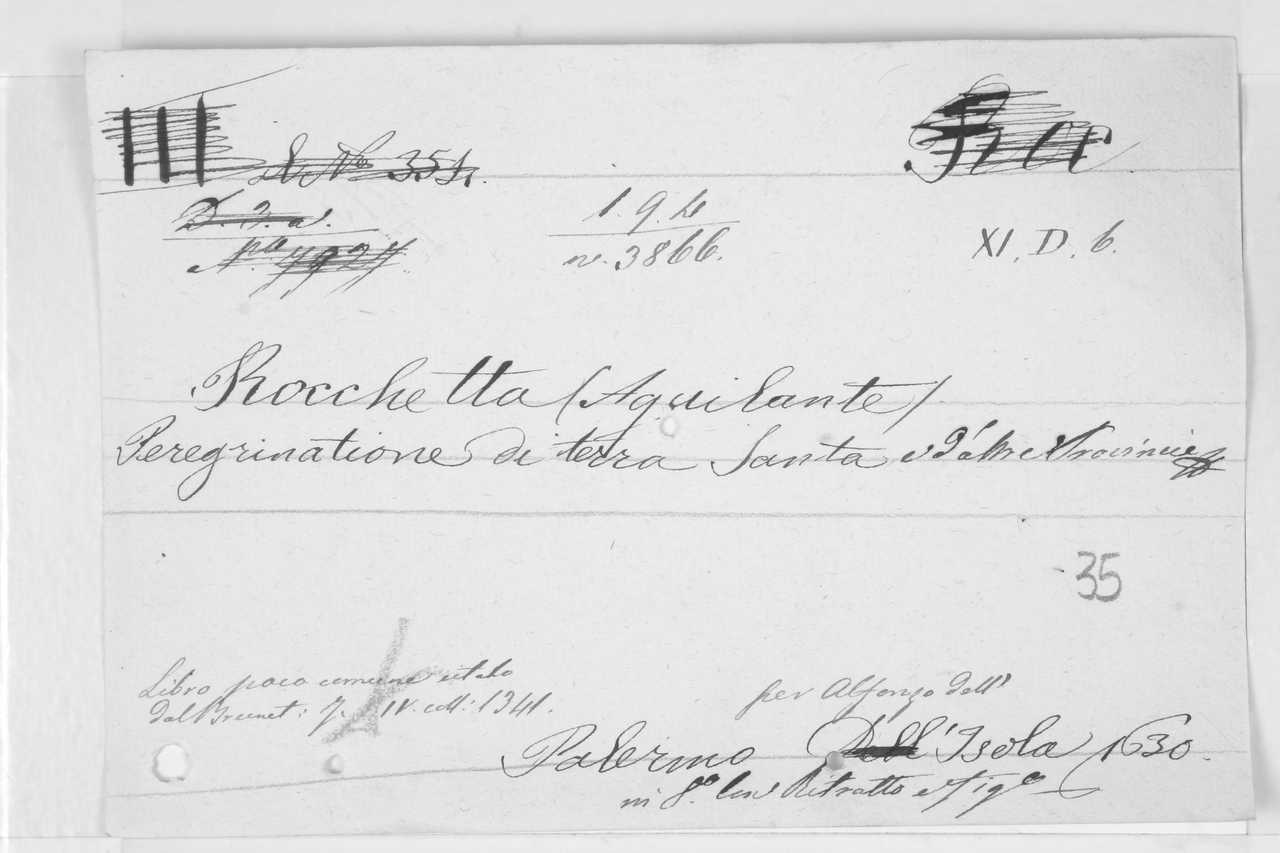 III
XI. D. 6.
1. 9. 4
n. 3866.
Rocchetta (Aquilante)
Peregrinatione di terra Santa e d'altre Provincie
35
Libro poco comune citato
dal Brunet: T. IV. coll: 1341.
per Alfonzo dell'
Palermo Dell'Isola 1630.
in 8.º con Ritratto e fig.e